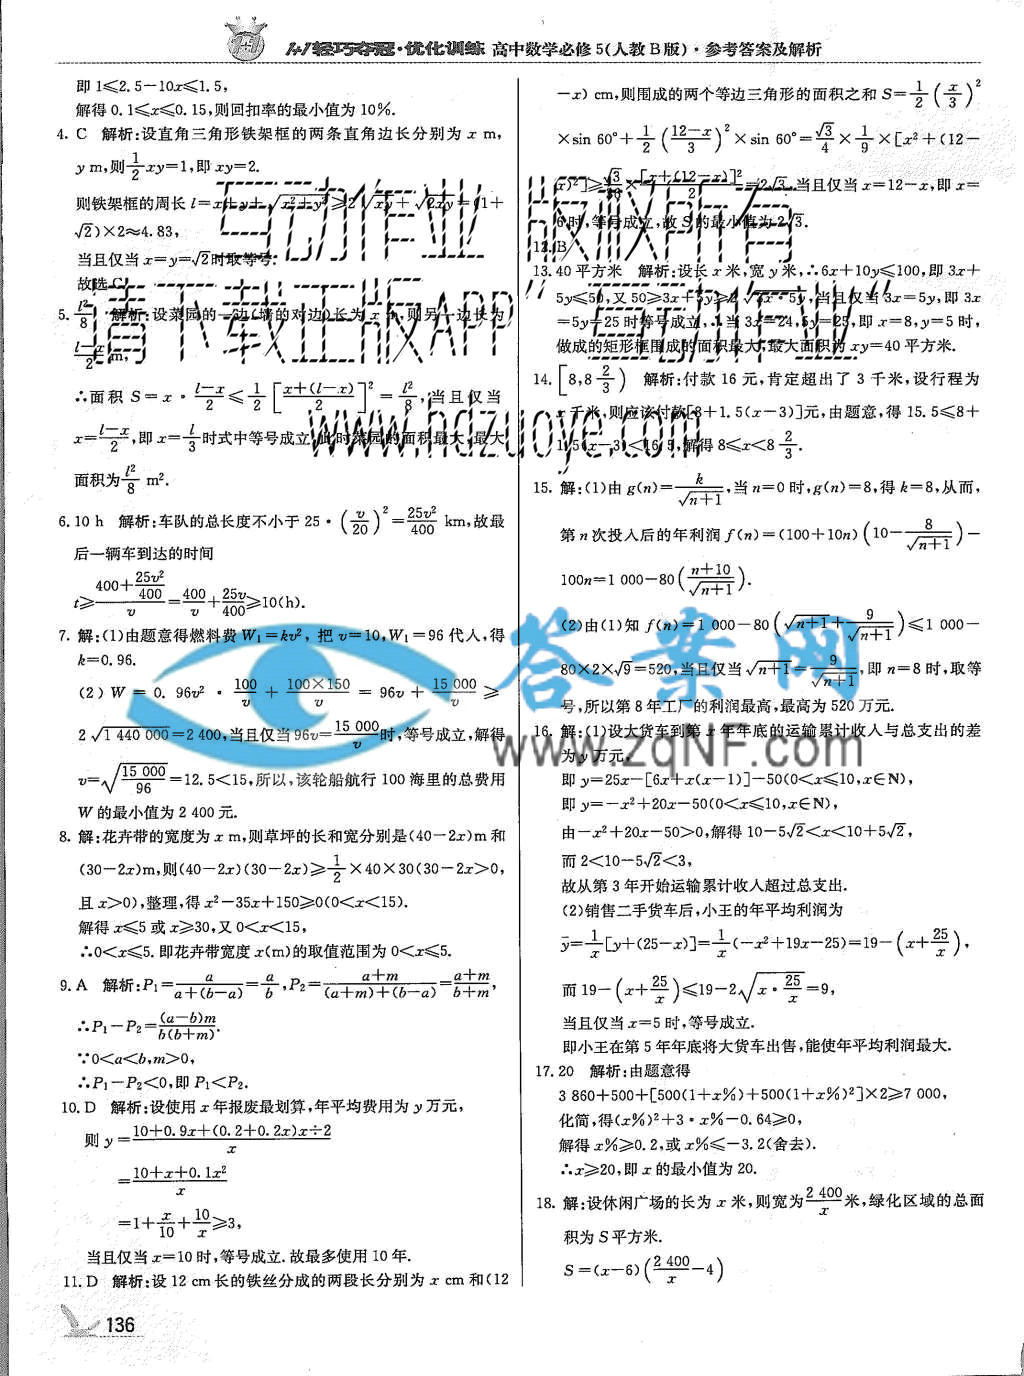 1+1轻巧夺冠·优化训练 高中数学必修5(人教B版)·参考答案及解析
即1≤2.5-10x≤1.5,
解得0.1≤x≤0.15,则回扣率的最小值为10%.
4. C 解析:设直角三角形铁架框的两条直角边长分别为 x m,
y m,则1/2xy=1,即xy=2.
则铁架框的周长 l=x+y+√x²+y²≥2√xy+√2xy=(1+
√2)×2≈4.83,
当且仅当x=y=√2时取等号.
故选C.
5. l²/8 解析:设菜园的一边(墙的对边)长为 x m,则另一边长为
(l-x)/2 m,
∴面积 S=x·(l-x)/2≤1/2[(x+(l-x))/2]²=l²/8,当且仅当
x=(l-x)/2,即x=l/3时式中等号成立,此时菜园的面积最大,最大
面积为l²/8 m².
6.10 h 解析:车队的总长度不小于25·(v/20)²=25v²/400 km,故最
后一辆车到达的时间
t≥(400+25v²/400)/v=400/v+25v/400≥10(h).
7. 解:(1)由题意得燃料费W₁=kv²,把v=10,W₁=96代人,得
k=0.96.
(2)W=0.96v²·100/v+(100×150)/v=96v+15 000/v≥
2√1 440 000=2 400,当且仅当96v=15 000/v时,等号成立,解得
v=√(15 000/96)=12.5<15,所以,该轮船航行100海里的总费用
W的最小值为2 400元.
8. 解:花卉带的宽度为x m,则草坪的长和宽分别是(40-2x)m和
(30-2x)m,则(40-2x)(30-2x)≥1/2×40×30(30-2x>0,
且x>0),整理,得x²-35x+150≥0(0<x<15).
解得x≤5或x≥30,又0<x<15,
∴0<x≤5.即花卉带宽度x(m)的取值范围为0<x≤5.
9. A 解析:P₁=a/(a+(b-a))=a/b,P₂=(a+m)/((a+m)+(b-a))=(a+m)/(b+m),
∴P₁-P₂=(a-b)m/b(b+m).
∵0<a<b,m>0,
∴P₁-P₂<0,即P₁<P₂.
10. D 解析:设使用x年报废最划算,年平均费用为y万元,
则y=(10+0.9x+(0.2+0.2x)x÷2)/x
=(10+x+0.1x²)/x
=1+x/10+10/x≥3,
当且仅当x=10时,等号成立.故最多使用10年.
11. D 解析:设12 cm长的铁丝分成的两段长分别为x cm和(12
136
-x) cm,则围成的两个等边三角形的面积之和S=1/2(x/3)²
×sin 60°+1/2((12-x)/3)²×sin 60°=√3/4×1/9×[x²+(12-
x)²]≥√3/36×[x+(12-x)]²/2=2√3.当且仅当x=12-x,即x=
6时,等号成立,故S的最小值为2√3.
12. B
13. 40平方米 解析:设长x米,宽y米,∴6x+10y≤100,即3x+
5y≤50,又50≥3x+5y≥2√3x·5y,当且仅当3x=5y,即3x
=5y=25时等号成立,∴当3x=24,5y=25,即x=8,y=5时,
做成的矩形框围成的面积最大,最大面积为xy=40平方米.
14. [8,8 2/3) 解析:付款16元,肯定超出了3千米,设行程为
x千米,则应该付款[8+1.5(x-3)]元,由题意,得15.5≤8+
1.5(x-3)<16.5,解得8≤x<8 2/3.
15. 解:(1)由g(n)=k/√n+1,当n=0时,g(n)=8,得k=8,从而,
第n次投入后的年利润f(n)=(100+10n)(10-8/√n+1)-
100n=1 000-80((n+10)/√n+1).
(2)由(1)知f(n)=1 000-80(√n+1+9/√n+1)≤1 000-
80×2×√9=520,当且仅当√n+1=9/√n+1,即n=8时,取等
号,所以第8年工厂的利润最高,最高为520万元.
16. 解:(1)设大货车到第x年年底的运输累计收入与总支出的差
为y万元,
即y=25x-[6x+x(x-1)]-50(0<x≤10,x∈N),
即y=-x²+20x-50(0<x≤10,x∈N),
由-x²+20x-50>0,解得10-5√2<x<10+5√2,
而2<10-5√2<3,
故从第3年开始运输累计收入超过总支出.
(2)销售二手货车后,小王的年平均利润为
ȳ=1/x[y+(25-x)]=1/x(-x²+19x-25)=19-(x+25/x),
而19-(x+25/x)≤19-2√(x·25/x)=9,
当且仅当x=5时,等号成立.
即小王在第5年年底将大货车出售,能使年平均利润最大.
17. 20 解析:由题意得
3 860+500+[500(1+x%)+500(1+x%)²]×2≥7 000,
化简,得(x%)²+3·x%-0.64≥0,
解得x%≥0.2,或x%≤-3.2(舍去).
∴x≥20,即x的最小值为20.
18. 解:设休闲广场的长为x米,则宽为2 400/x米,绿化区域的总面
积为S平方米.
S=(x-6)(2 400/x-4)
互动作业 版权所有
请下载正版APP“互动作业”
www.hdzuoye.com
答案网
www.zqNF.com